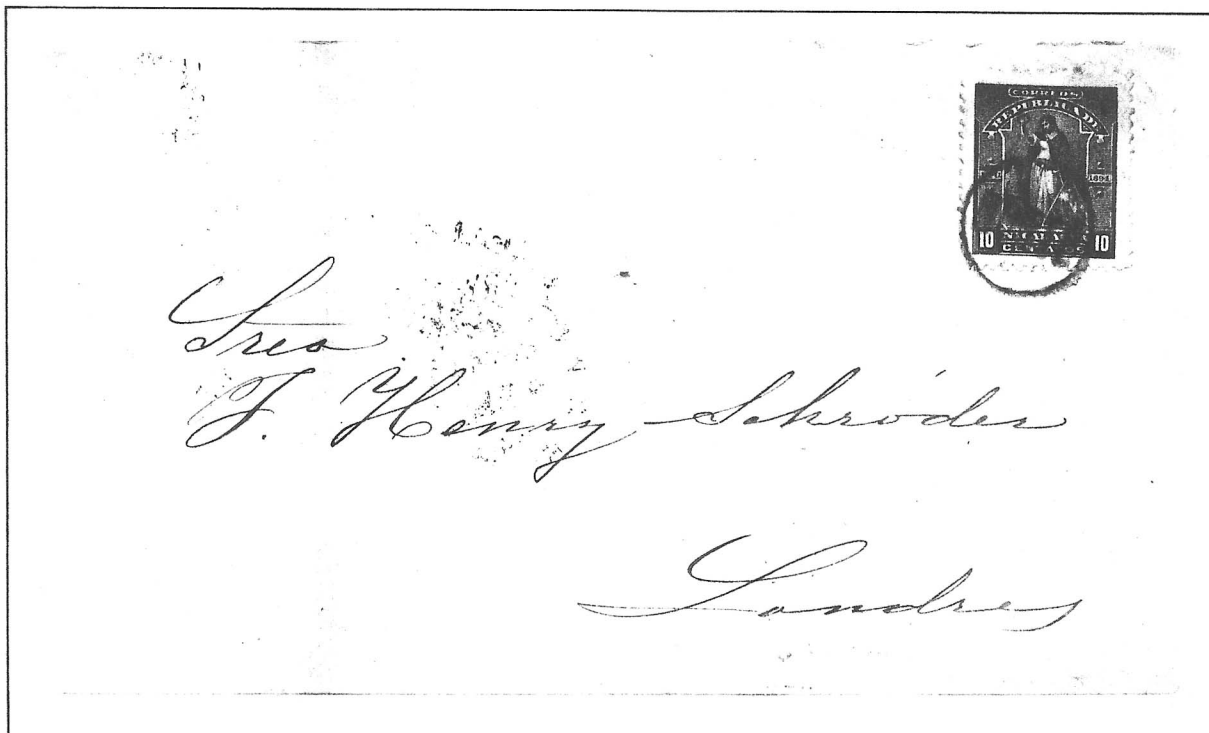 CORREOS
REPUBLICA DE
1894
10 NICARAGUA 10
CENTAVOS
Sres
J. Henry Schröder
Londres